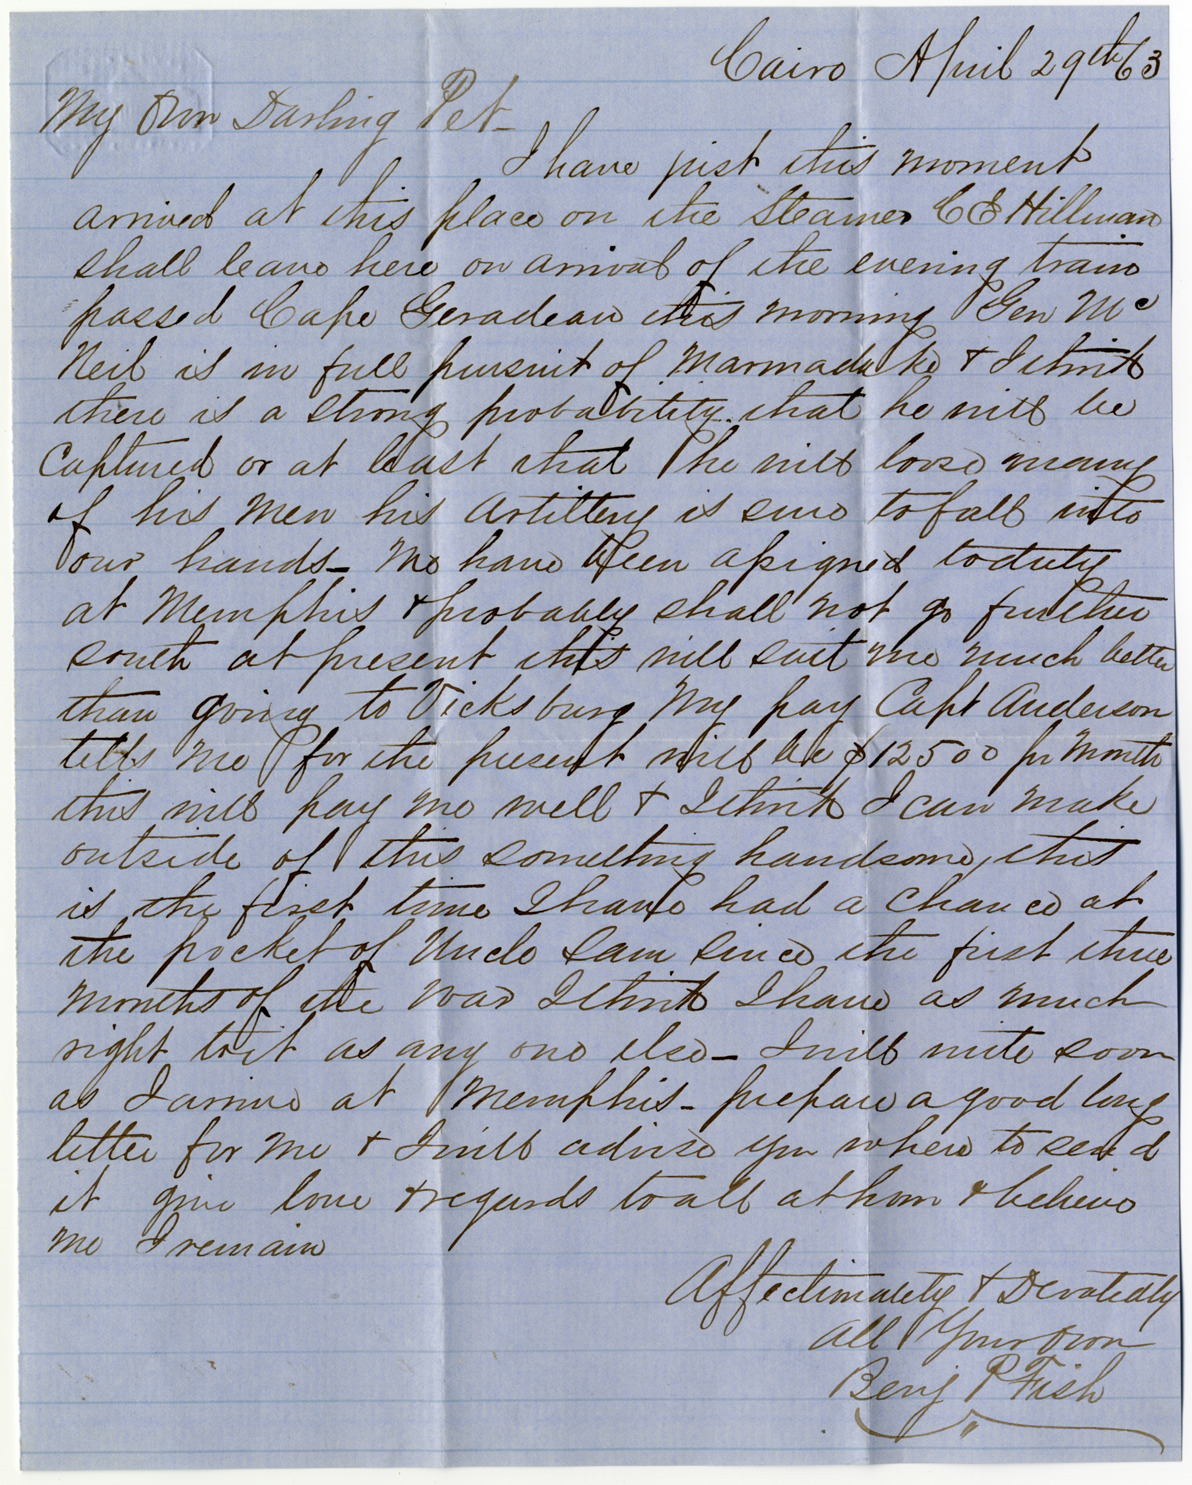 Cairo April 29th/63
My Own Darling Pet_
I have just this moment
arrived at this place on the Steamer C E Hillman
shall leave here on arrival of the evening train
passed Cape Geradeau this morning Gen Mc
Neil is in full pursuit of Marmaduke & I think
there is a strong probability that he will be
captured or at least that he will loose many
of his men his artillery is sure to fall into
our hands_ We have been assigned to duty
at Memphis & probably shall not go further
south at present this will suit me much better
than going to Vicksburg My pay Capt Anderson
tells me for the present will be $125 00 pr month
this will pay me well & I think I can make
outside of this something handsome, this
is the first time I have had a chance at
the pocket of Uncle Sam since the first three
months of the war I think I have as much
right to it as any one else_ I will write soon
as I arrive at Memphis_ prepare a good long
letter for me & I will advise you where to send
it give love & regards to all at home & believe
me I remain
Affectionately & Devotedly
All Your own
Benj P Fish